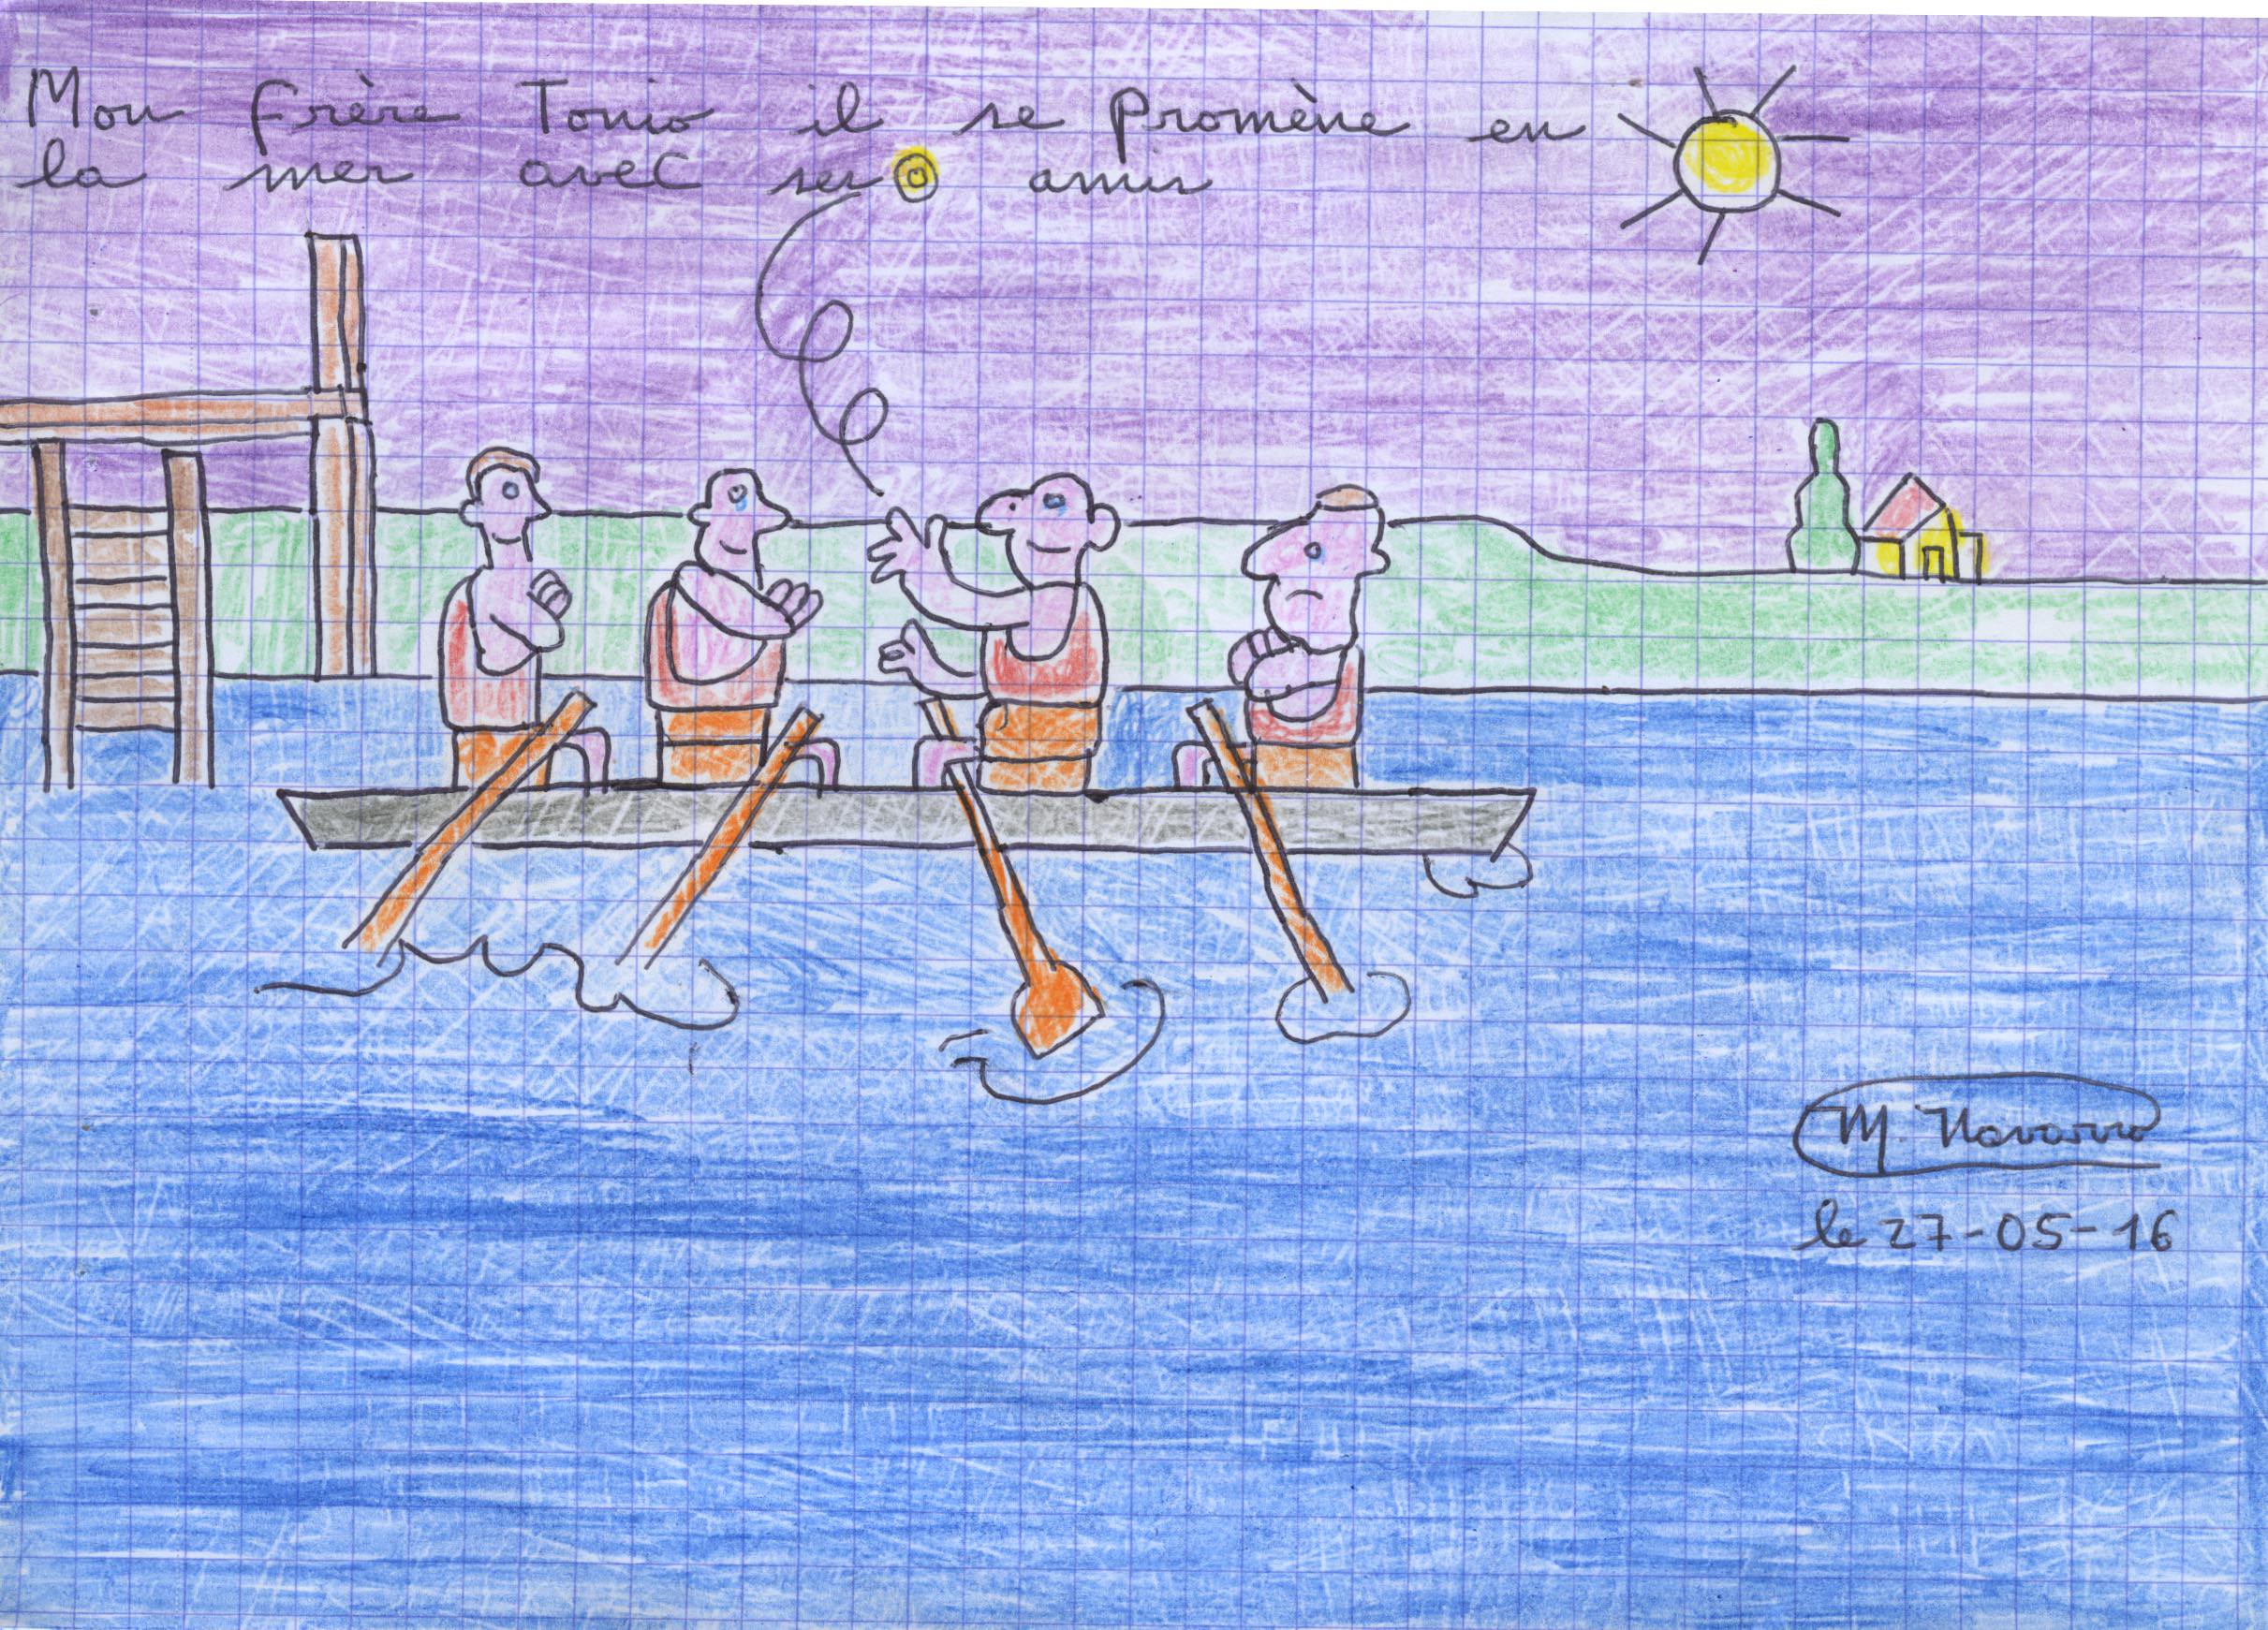 Mon frère Tonio il se promène en
la mer avec ses amis
M. Navarro
le 27-05-16